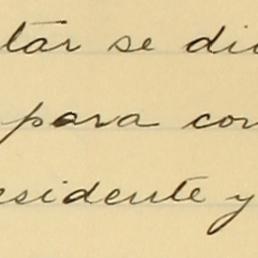 tar se di
para con
esidente y